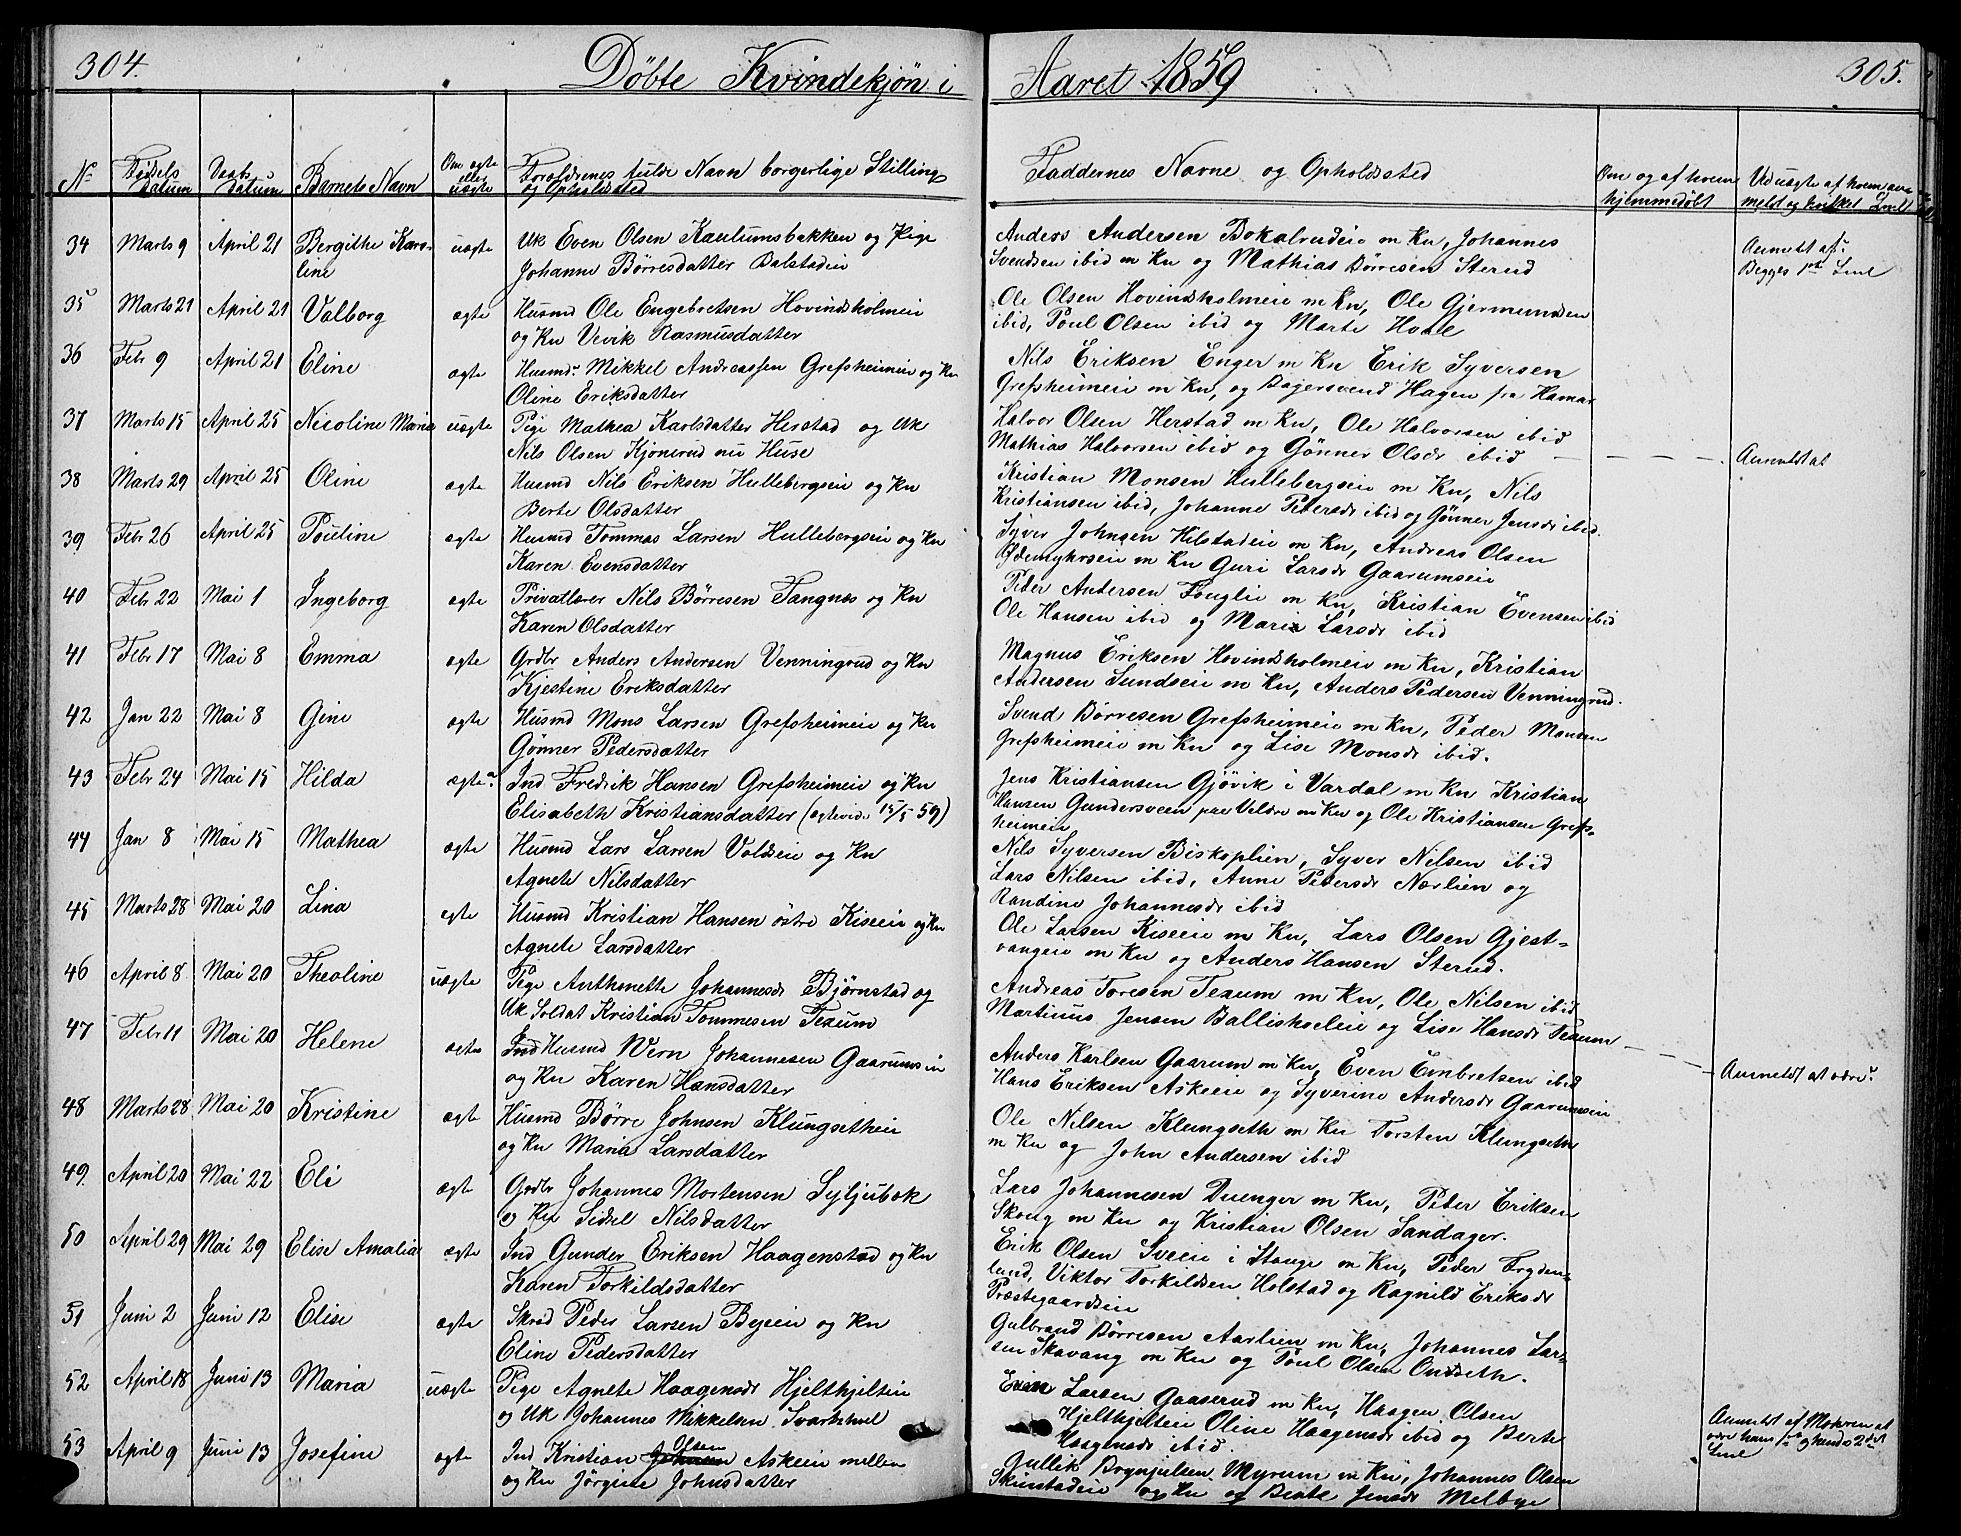 304.
Döbte Kvindekjøn i
Aaret 1859
305.
No
Fødsels datum
Daabs datum
Barnets Navn
Om ægte eller uægte
Forældrenes fulde Navn borgerlige Stilling og Opholdssted
Faddernes Navne og Opholdssted
Om og af hvem hjemmedøbt
34 Marts 9 April 21 Bergithe Karo- uægte Uk Even Olsen Kaulumsbakken og Pige
line Johanne Börresdatter Balstadeie
Anders Andersen Bokalrudeie m Kn, Johannes
Svendsen ibid m Kn og Mathias Börresen Sterud
Anmeldt af
Begges 1ste Leiel
35 Marts 21 April 21 Valborg ægte Husmd Ole Engebretsen Hovindsholmeie
og Kn Vevik Rasmusdatter
Ole Olsen Hovindsholmeie m Kn, Ole Gjermundsen
ibid, Poul Olsen ibid og Marte Hoel
36 Febr 9 April 21 Eline ægte Husmd Mikkel Andreassen Grefsheimeie og Kn
Oline Eriksdatter
Nils Eriksen Enger m Kn Erik Syversen
Grefsheimeie m Kn, og Bagersvend Hagen fra Hamar
37 Marts 15 April 25 Nicoline Maria uægte Pige Mathea Karlsdatter Herstad og Uk
Nils Olsen Kjonerud nu Huse
Halvor Olsen Herstad m Kn, Ole Halvorsen ibid
Mathias Halvorsen ibid og Gönner Olsdr ibid
Anmeldt at
38 Marts 29 April 25 Oline ægte Husmd Nils Eriksen Hullebergseie og Kn
Berte Olsdatter
Kristian Monsen Hullebergseie m Kn, Nils
Kristiansen ibid, Johanne Petersdr ibid og Gönner Jensdr ibid.
39 Febr 26 April 25 Pouline ægte Husmd Tommas Larsen Hullebergseie og Kn
Karen Evensdatter
Syver Johnsen Hilstadeie m Kn, Andreas Olsen
Ødemyhrseie m Kn Guri Larsdr Gaarumseie
40 Febr 22 Mai 1 Ingeborg ægte Privatlærer Nils Börresen Tangnes og Kn
Karen Olsdatter
Peder Andersen Fouglie m Kn, Kristian Evensen ibid
Ole Hansen ibid og Maria Larsdr ibid
41 Febr 17 Mai 8 Emma ægte Grdbr Anders Andersen Venningrud og Kn
Kjestine Eriksdatter
Magnus Eriksen Hovindsholmeie m Kn, Kristian
Andersen Sundseie m Kn, Anders Pedersen Venningrud.
42 Jan 22 Mai 8 Gine ægte Husmd Mons Larsen Grefsheimeie og Kn
Gönner Pedersdatter
Svend Börresen Grefsheimeie m Kn, Peder Monsen
Grefsheimeie m Kn og Lise Monsdr ibid.
43 Febr 24 Mai 15 Hilda ægte Ind Fredrik Hansen Grefsheimeie og Kn
Elisabeth Kristiansdatter (ægtevide 15/5 59)
Jens Kristiansen Gjövik i Vardal m Kn Kristian
Hansen Gundersveen paa Veldre m Kn og Ole Kristiansen Grefs-
heimeie
44 Jan 8 Mai 15 Mathea ægte Husmd Lars Larsen Voldseie og Kn
Agnete Nilsdatter
Nils Syversen Biskoplien, Syver Nilsen ibid
Lars Nilsen ibid, Anne Pedersdr Nærlien og
Randine Johannesdr ibid
45 Marts 28 Mai 20 Lina ægte Husmd Kristian Hansen östre Kiseeie og Kn
Agnete Larsdatter
Ole Larsen Kiseeie m Kn, Lars Olsen Gjest-
vangeie m Kn og Anders Hansen Sterud.
46 April 8 Mai 20 Theoline uægte Pige Anthonette Johannesdr Björnstad og
Uk Soldat Kristian Tommesen Texum
Andreas Toresen Texum m Kn, Ole Nilsen ibid
Martinus Jensen Balliskoleie og Lise Hansdr Texum
47 Febr 11 Mai 20 Helene ægte Ind Husmd Wern Johannesen Gaarumseie
og Kn Karen Hansdatter
Anders Karlsen Gaarum m Kn, Even Embretsen ibid
Hans Eriksen Askeeie og Syverine Andersdr Gaarumseie
Anmeldt at være
48 Marts 28 Mai 20 Kristine ægte Husmd Börre Johnsen Klungsetheie
og Kn Maria Larsdatter
Ole Nilsen Klungseth m Kn Torsten Klungseth
m Kn og John Andersen ibid
49 April 20 Mai 22 Eli ægte Grdbr Johannes Mortensen Syljubæk
og Kn Sidsel Nilsdatter
Lars Johannesen Duenger m Kn, Peder Eriksen
Skoug m Kn og Kristian Olsen Sandager.
50 April 29 Mai 29 Elise Amalia ægte Ind Gunder Eriksen Haagenstad og Kn
Karen Torkildsdatter
Erik Olsen Sveeie i Stange m Kn, Peder Fryden-
lund, Viktor Torkildsen Holstad og Ragnild Eriksdr
Præstegaardseie
51 Juni 2 Juni 12 Elise ægte Skræd Peder Larsen Byeeie og Kn
Eline Pedersdatter
Gulbrand Börresen Aarlien m Kn, Johannes Lar-
sen Skavang m Kn og Poul Olsen Onsæth.
52 April 18 Juni 13 Maria uægte Pige Agnete Haagensdr Hjelthjelteie
og Uk Johannes Mikkelsen Svartshuel
Even Larsen Gaaserud m Kn, Haagen Olsen
Hjelthjelteie Oline Haagensdr ibid og Berte
Haagensdr ibid.
Anmeldt af Moderen at
være hans 1ste og hendes 2det
Leiel
53 April 9 Juni 13 Josefine ægte Ind Kristian Olsen Askeeie mellem
og Kn Jörgine Johnsdatter
Gullik Brynjulsen Myrum m Kn, Johannes Olsen
Skurstadeie og Kn og Berte Jensdr Melbye